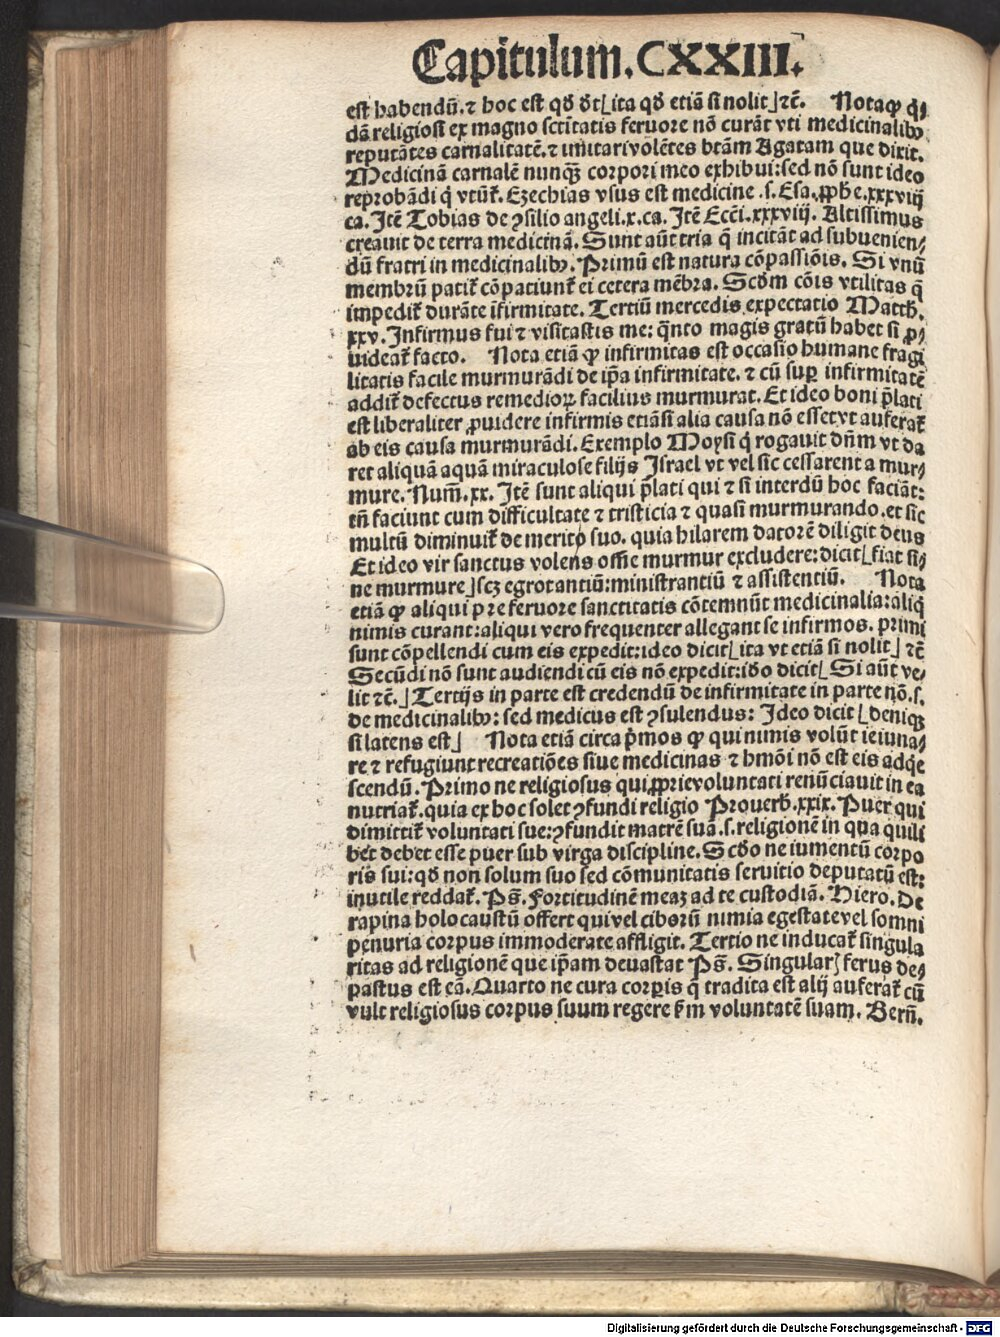 Capitulum. CXXIII.
est habendū. ⁊ hoc est qd̄ dt̄ ⌊ita qd̄ etiā si nolit⌋ ⁊c̄. Nota ꝙ q̄⸗
dā religiosi ex magno sctītatis feruore nō curāt vti medicinalibꝰ
reputātes carnalitatē. ⁊ imitari volētes btām Agatam que dixit.
Medicinā carnalē nunqꝫ corpori meo exhibui: sed nō sunt ideo
reprobādi q̇ vtūt᷑. Ezechias vsus est medicine .s. Esa. ꝓphe. xxxviij
ca. Itē Tobias de ꝯsilio angeli. x. ca. Itē Ecc̄i. xxxviij. Altissimus
creauit de terra medicinā. Sunt aūt tria q̄ incitāt ad subuenien⸗
dū fratri in medicinalibꝰ. Primū est natura cōpassiōis. Si vnū
membrū patit᷑ cōpatiunt᷑ ei cetera mēbra. Scd̄m cōis vtilitas q̄
impedit᷑ durāte īfirmitate. Tertiū mercedis expectatio Matth.
xxv. Infirmus fui ⁊ visitastis me: q̄nto magis gratū habet si ꝓ⸗
uideat᷑ facto. Nota etiā ꝙ infirmitas est occasio humane fragi
litatis facile murmurādi de ip̄a infirmitate. ⁊ cū sup̱ infirmitatē
addit᷑ defectus remedioꝝ facilius murmurat. Et ideo boni p̄lati
est liberaliter ꝓuidere infirmis etiāsi alia causa nō esset vt auferat᷑
ab eis causa murmurādi. Exemplo Moysi q̇ rogauit dn̄m vt da
ret aliquā aquā miraculose filijs Israel vt vel sic cessarent a mur⸗
mure. Num̄. xx. Itē sunt aliqui p̄lati qui ⁊ si interdū hoc faciāt:
tn̄ faciunt cum difficultate ⁊ tristicia ⁊ quasi murmurando. et sic
multū diminuit᷑ de merito suo. quia hilarem datorē diligit deus
Et ideo vir sanctus volens om̄e murmur excludere: dicit ⌊fiat si⸗
ne murmure⌋ scꝫ egrotantiū: ministrantiū ⁊ assistentiū. Nota
etiā ꝙ aliqui pre feruore sanctitatis cōtemnūt medicinalia: aliq̇
nimis curant: aliqui vero frequenter allegant se infirmos. primi
sunt cōpellendi cum eis expedit: ideo dicit ⌊ita vt etiā si nolit⌋ ⁊c̄
Secūdi nō sunt audiendi cū eis nō expedit: id̄o dicit ⌊Si aūt ve⸗
lit ⁊c̄.⌋ Tertijs in parte est credendū de infirmitate in parte nō. s.
de medicinalibꝰ: sed medicus est ꝯsulendus: Ideo dicit ⌊deniqꝫ
si latens est⌋ Nota etiā circa p̄mos ꝙ qui nimis volūt ieiuna⸗
re ⁊ refugiunt recreatiōes siue medicinas ⁊ hmōi nō est eis adq̇e
scendū. Primo ne religiosus qui ꝓprie voluntati renūciauit in ea
nutriat᷑. quia ex hoc solet ꝯfundi religio Prouerb̄. xxix. Puer qui
dimittit᷑ voluntati sue: ꝯfundit matrē suā. s. religionē in qua quili
bet debet esse puer sub virga discipline. Scd̄o ne iumentū corpo
ris sui: qd̄ non solum suo sed cōmunitatis seruitio deputatū est:
inutile reddat᷑. Ps̄. Fortitudinē meaꝫ ad te custodiā. Hiero. De
rapina holocaustū offert qui vel ciborū nimia egestate vel somni
penuria corpus immoderate affligit. Tertio ne inducat᷑ singula
ritas ad religionē que ip̄am deuastat Ps̄. Singularꝭ ferus de⸗
pastus est eā. Quarto ne cura corꝑis q̄ tradita est alij auferat᷑ cū
vult religiosus corpus suum regere ẜm voluntatē suam. Bern̄.
Digitalisierung gefördert durch die Deutsche Forschungsgemeinschaft - DFG